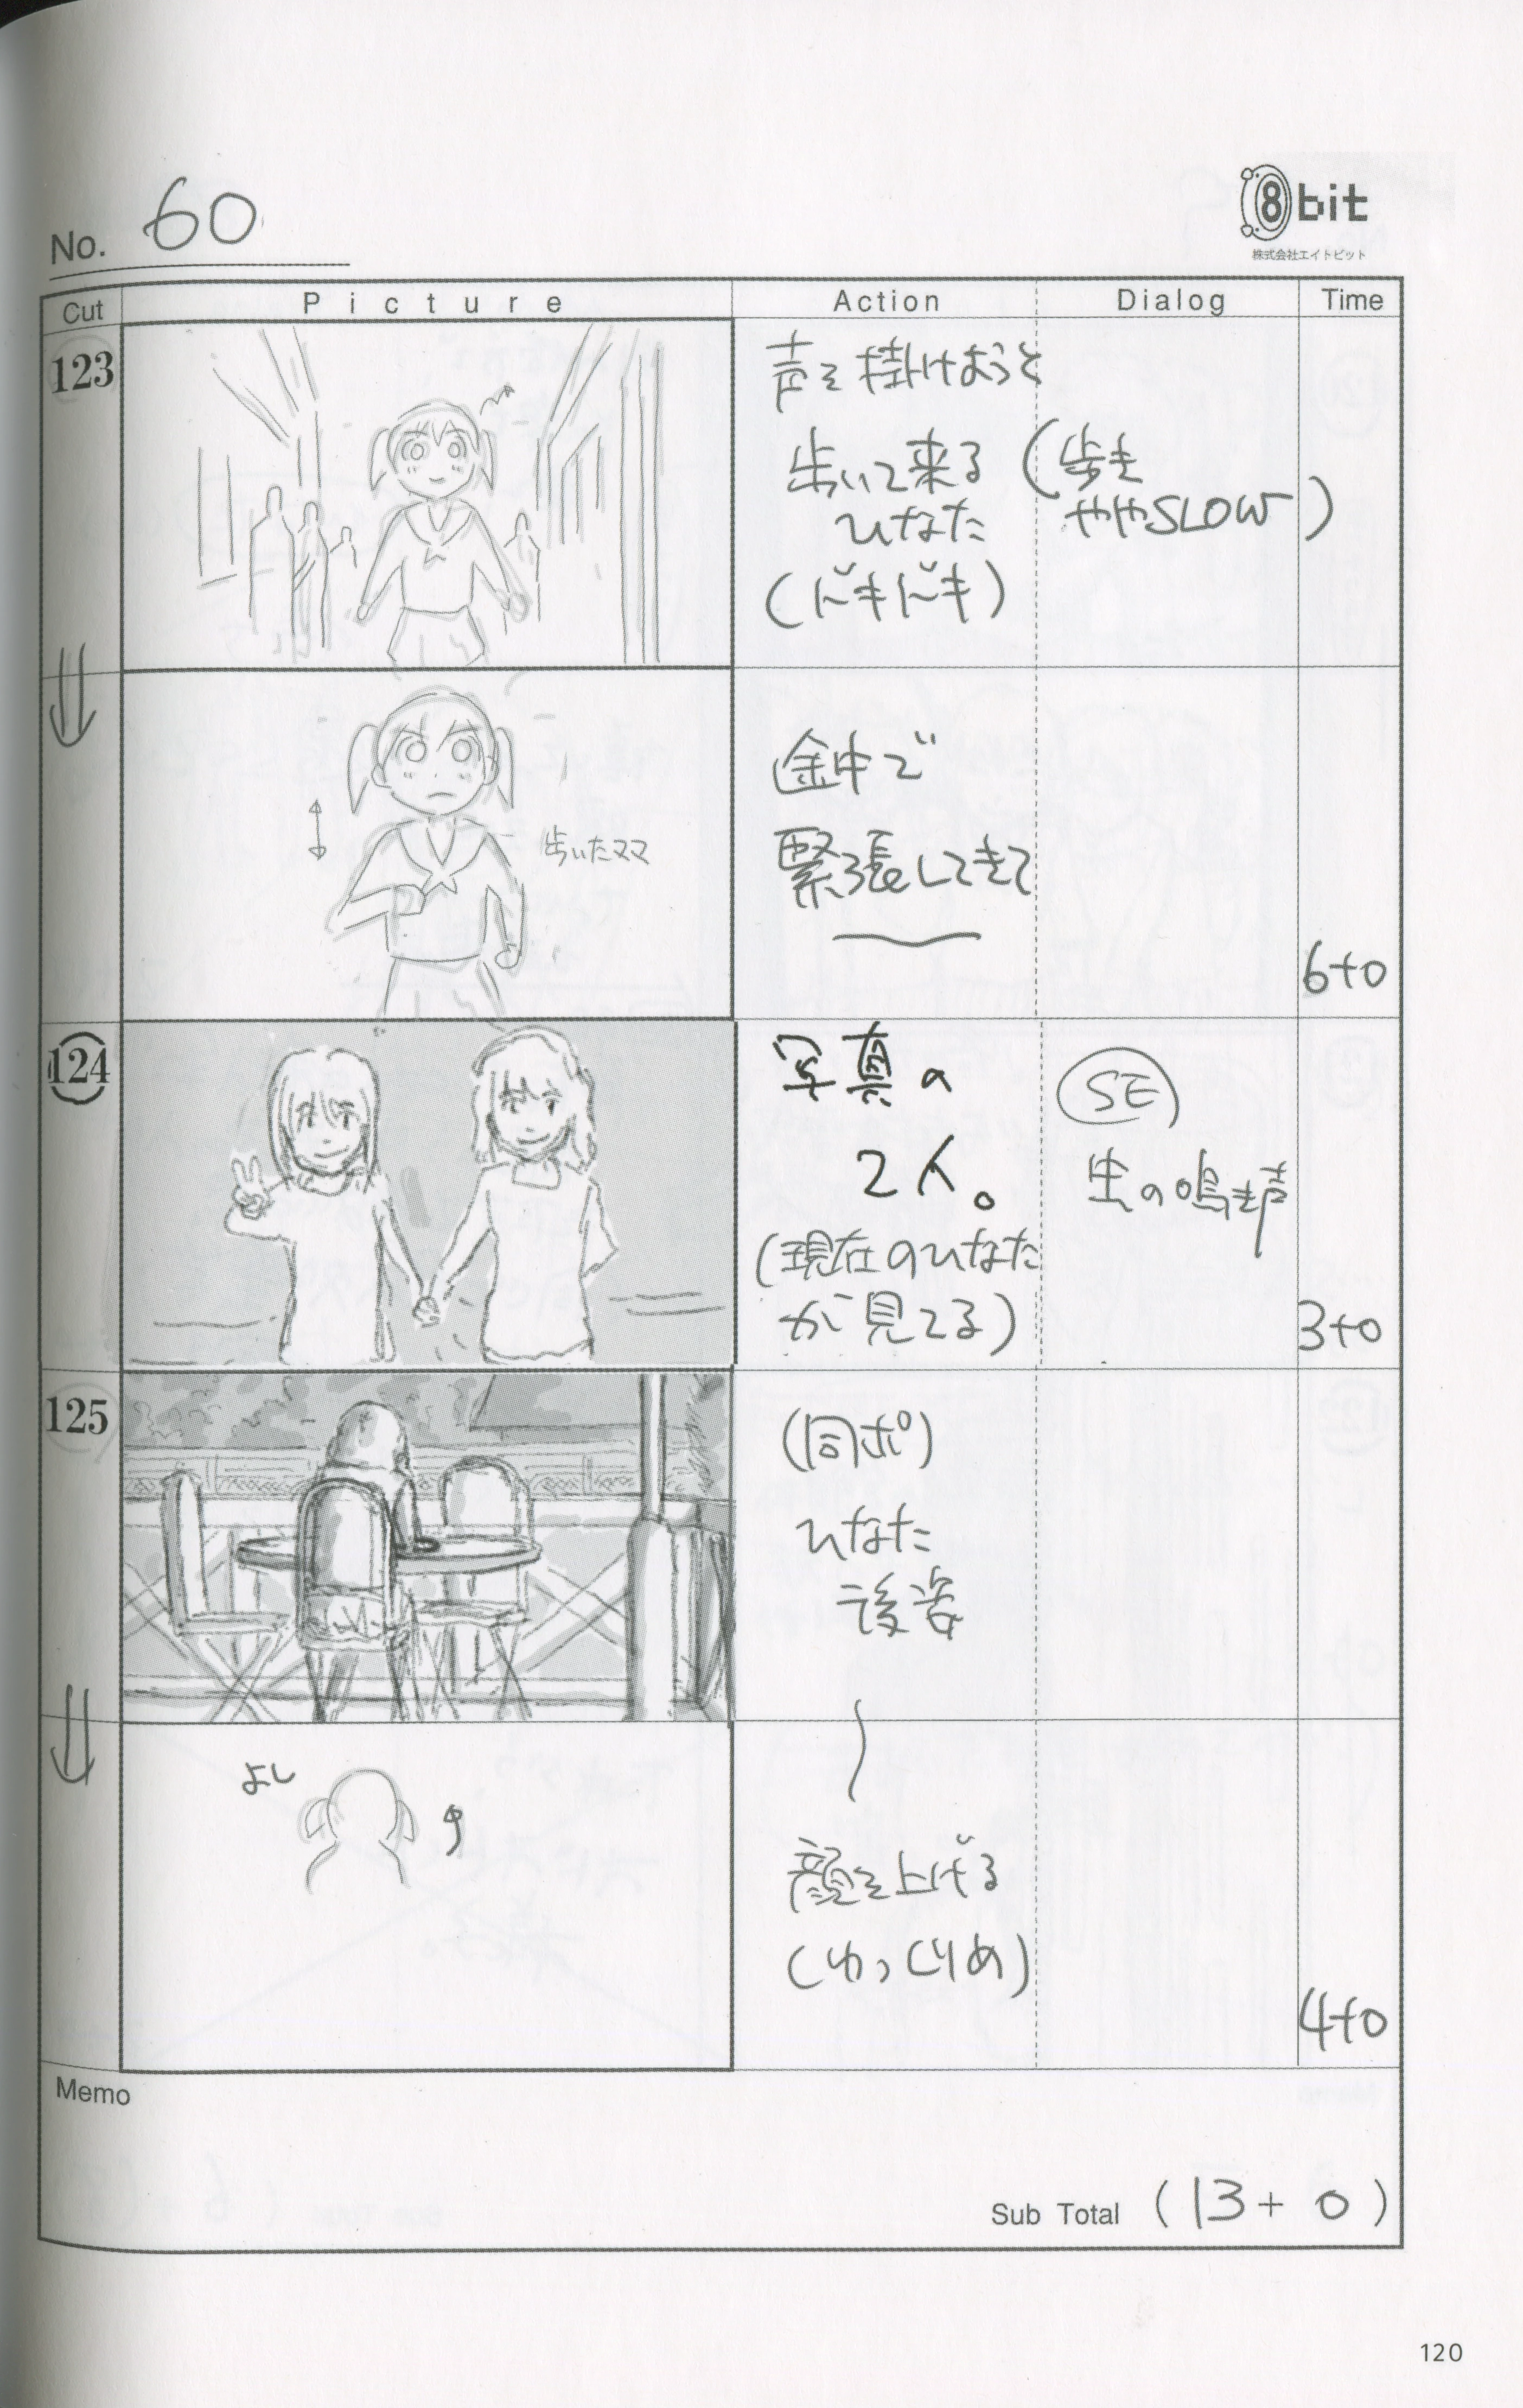 No. 60
8bit
株式会社エイトビット
Cut Picture Action Dialog Time
123
声を掛けようと
歩いて来る
ひなた
(ドキドキ)
(歩き
ややSLOW)
歩いたママ
途中で
緊張してきて
6+0
124
写真の
2人。
(現在のひなた
が見てる)
SE
虫の鳴き声
3+0
125
(同ポ)
ひなた
後姿
よし
顔を上げる
(ゆっくりめ)
4+0
Memo
Sub Total (13+0)
120